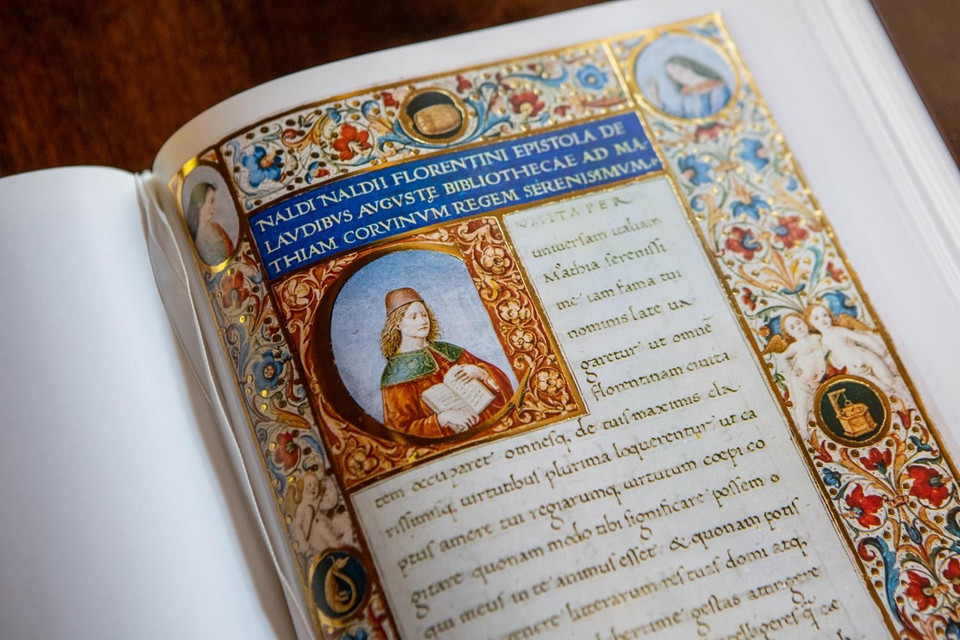 NALDI NALDII FLORENTINI EPISTOLA DE
LAVDIBVS AVGVSTE BIBLIOTHECAE AD MA-
THIAM CORVINVM REGEM SERENISSIMVM.
universam italiam
Mathia serenissi
me iam fama tui
nominis late va
garetur ut omne
florentinam civita
tem occuparet omnesq. de tuis maximis cla
rissimisq virtutibus plurima loquerentur ut ca
ptus amore tui regiarumq virtutum coepi co
gitare quonam modo tibi significare possem o
qui meus in te animus esset & quonam potis
litterarum res tuas domi atq.
gestas attingere